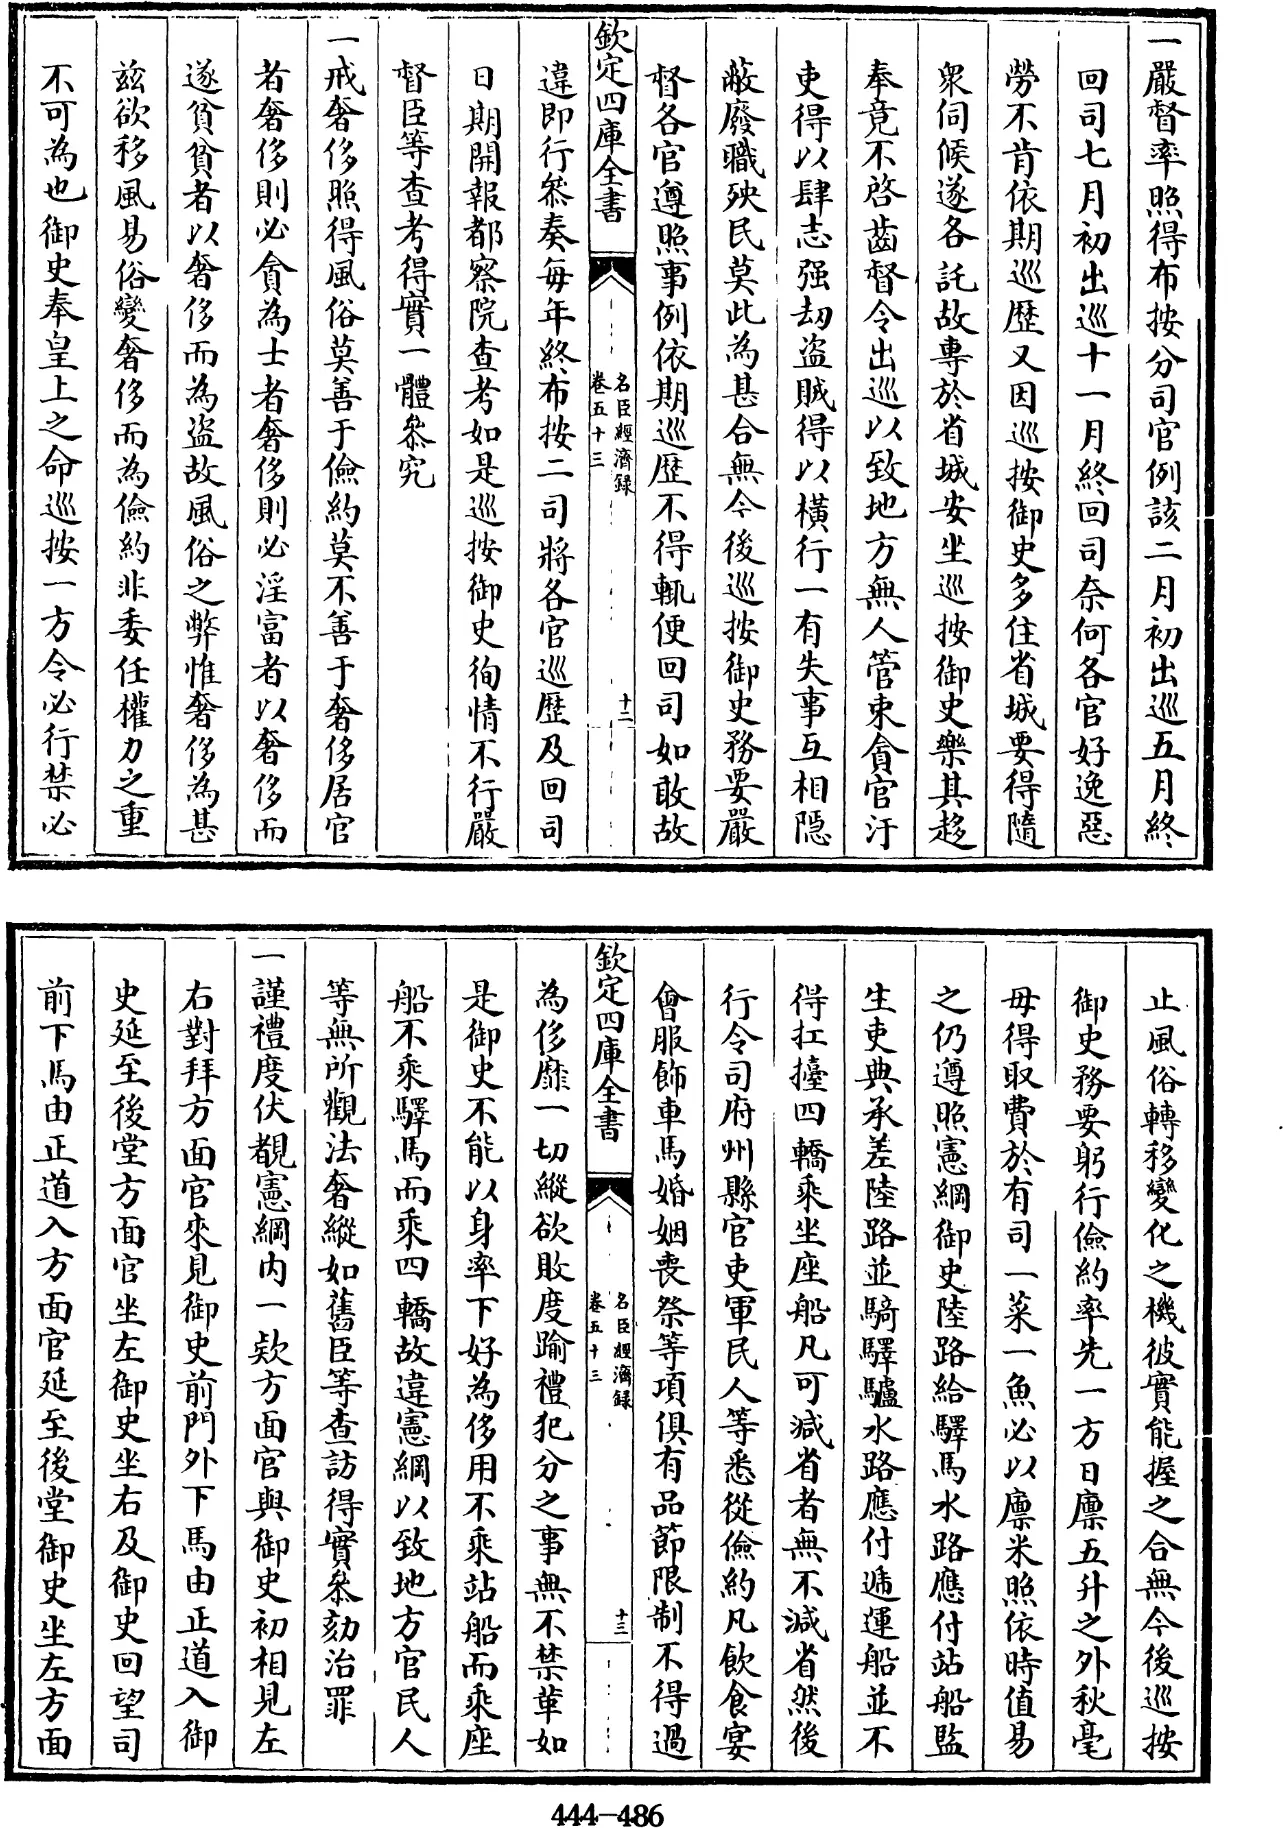 一嚴督率照得布按分司官例該二月初出巡五月終
回司七月初出巡十一月終回司奈何各官好逸惡
勞不肯依期巡歷又因巡按御史多住省城要得隨
衆伺候遂各託故專於省城安坐巡按御史樂其趍
奉竟不啓齒督令出巡以致地方無人管束貪官汙
吏得以肆志强刼盗賊得以横行一有失事互相隠
蔽廢職殃民莫此為甚合無今後巡按御史務要嚴
督各官遵照事例依期巡歷不得輒便回司如敢故
欽定四庫全書
名臣經濟録
卷五十三
十二
違即行叅奏每年終布按二司將各官巡歷及回司
日期開報都察院查考如是巡按御史徇情不行嚴
督臣等查考得實一體叅究
一戒奢侈照得風俗莫善于儉約莫不善于奢侈居官
者奢侈則必貪為士者奢侈則必淫富者以奢侈而
遂貧貧者以奢侈而為盗故風俗之弊惟奢侈為甚
兹欲移風易俗變奢侈而為儉約非委任權力之重
不可為也御史奉皇上之命巡按一方令必行禁必
止風俗轉移變化之機彼實能握之合無今後巡按
御史務要躬行儉約率先一方日廪五升之外秋毫
毋得取費於有司一菜一魚必以廪米照依時值易
之仍遵照憲綱御史陸路給驛馬水路應付站船監
生吏典承差陸路並騎驛驢水路應付逓運船並不
得扛擡四轎乘坐座船凡可减省者無不减省然後
行令司府州縣官吏軍民人等悉從儉約凡飲食宴
會服飾車馬婚姻喪祭等項俱有品節限制不得過
欽定四庫全書
名臣經濟録
卷五十三
十三
為侈靡一切縱欲敗度踰禮犯分之事無不禁革如
是御史不能以身率下好為侈用不乘站船而乘座
船不乘驛馬而乘四轎故違憲綱以致地方官民人
等無所觀法奢縱如舊臣等查訪得實叅劾治罪
一謹禮度伏覩憲綱内一欵方面官與御史初相見左
右對拜方面官來見御史前門外下馬由正道入御
史延至後堂方面官坐左御史坐右及御史回望司
前下馬由正道入方面官延至後堂御史坐左方面
444-486